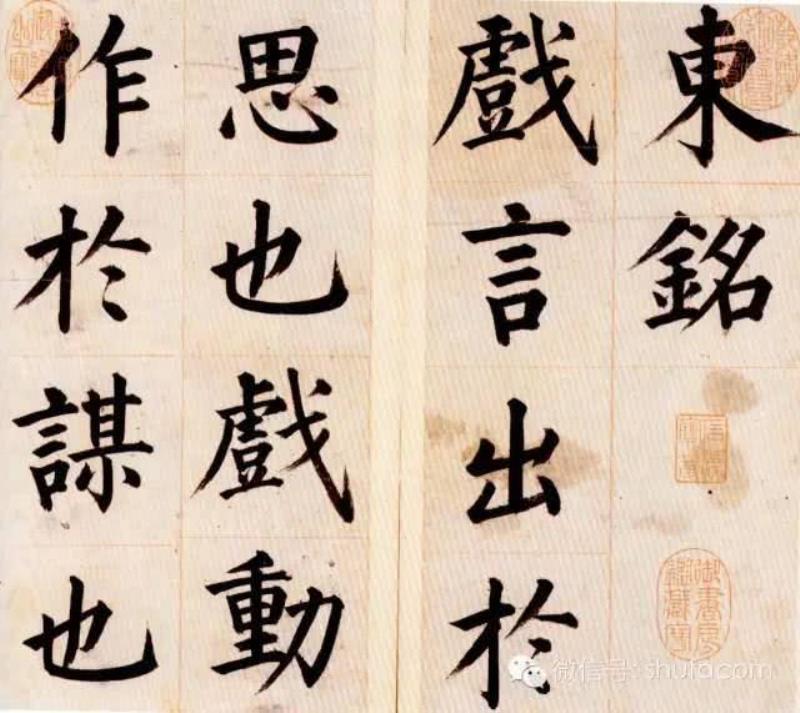 東銘
戲言出於
思也戲動
作於謀也
御書房鑑藏寶
微信号: shufacom